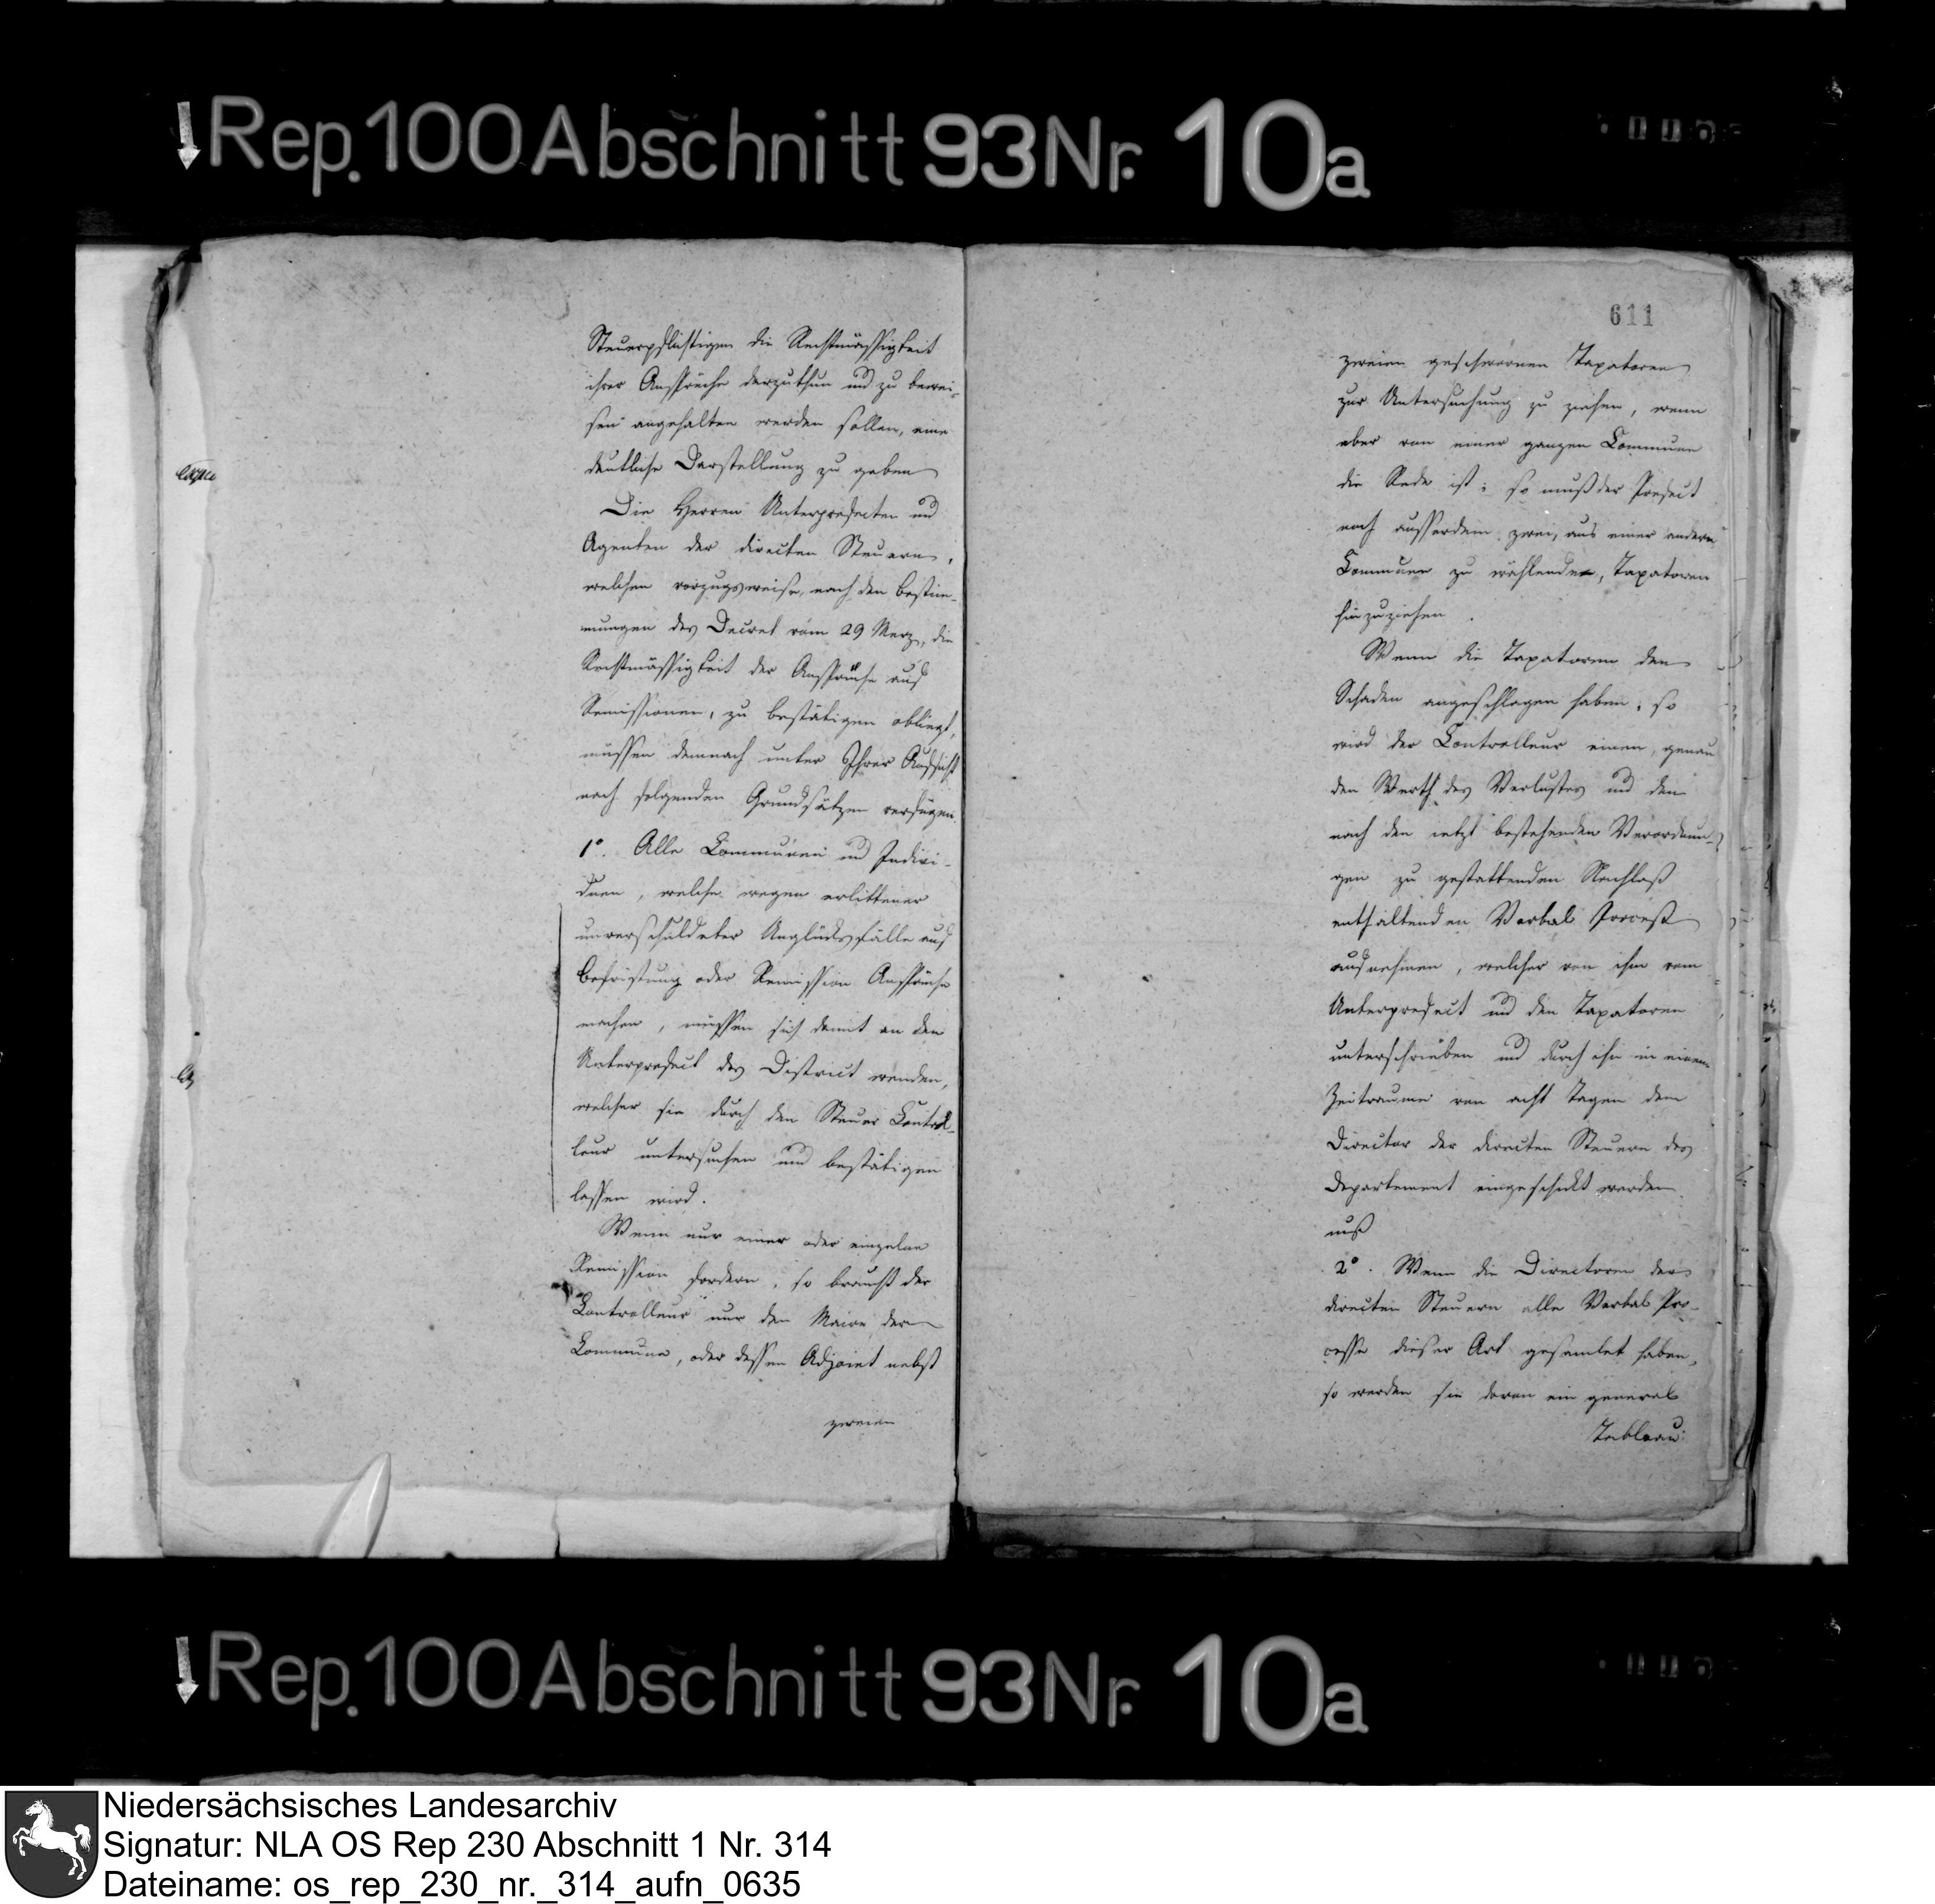 Rep. 100 Abschnitt 93 Nr. 10a
Steuerpflichtigen die Rechtmässigkeit
ihrer Ansprüche darzuthun und zu bewei-
sen angehalten werden sollen, eine
deutliche Darstellung zu geben
Die Herren Unterpräfecten und
Agenten der directen Steuern,
welchen vorzugsweise, nach den Bestim-
mungen des Decret vom 29 Merz, die
Rechtmässigkeit der Ansprüche auf
Remissionen, zu bestätigen obliegt,
müssen demnach unter Ihrer Aufsicht
nach folgenden Grundsätzen verfügen.
1°. Alle Communen und Indivi-
duen, welche wegen erlittener
unverschuldeter Unglücksfälle auf
Befristung oder Remission Ansprüche
machen, müssen sich damit an den
Unterprefect des District wenden,
welcher sie durch den Steuer Control-
leur untersuchen und bestätigen
lassen wird.
Wenn nur einer oder einzelne
Remission fordern, so braucht der
Controlleur nur den Maire der
Commune, oder dessen Adjoint nebst
zweien
611
zweien geschwornen Taxatoren
zur Untersuchung zu ziehen, wenn
aber von einer ganzen Commune
die Rede ist; so muß der Prefect
noch ausserdem zwei, aus einer andern
Commune zu wählende, Taxatoren
hinzuziehen.
Wenn die Taxatoren den
Schaden angeschlagen haben, so
wird der Controlleur einen, genau
den Werth des Verlustes und den
nach den jetzt bestehenden Verordnun-
gen zu gestattenden Nachlaß
enthaltenden Verbal Proceß
aufnehmen, welcher von ihm vom
Unterprefect und den Taxatoren
unterschrieben und durch ihn in einem
Zeitraume von acht Tagen dem
Director der directen Steuern des
Departement eingeschickt werden
muß
2°. Wenn die Directoren der
directen Steuern alle Verbal Pro-
cesse dieser Art gesamlet haben,
so werden sie davon ein general
Tableau
Rep. 100 Abschnitt 93 Nr. 10a
Niedersächsisches Landesarchiv
Signatur: NLA OS Rep 230 Abschnitt 1 Nr. 314
Dateiname: os_rep_230_nr._314_aufn_0635